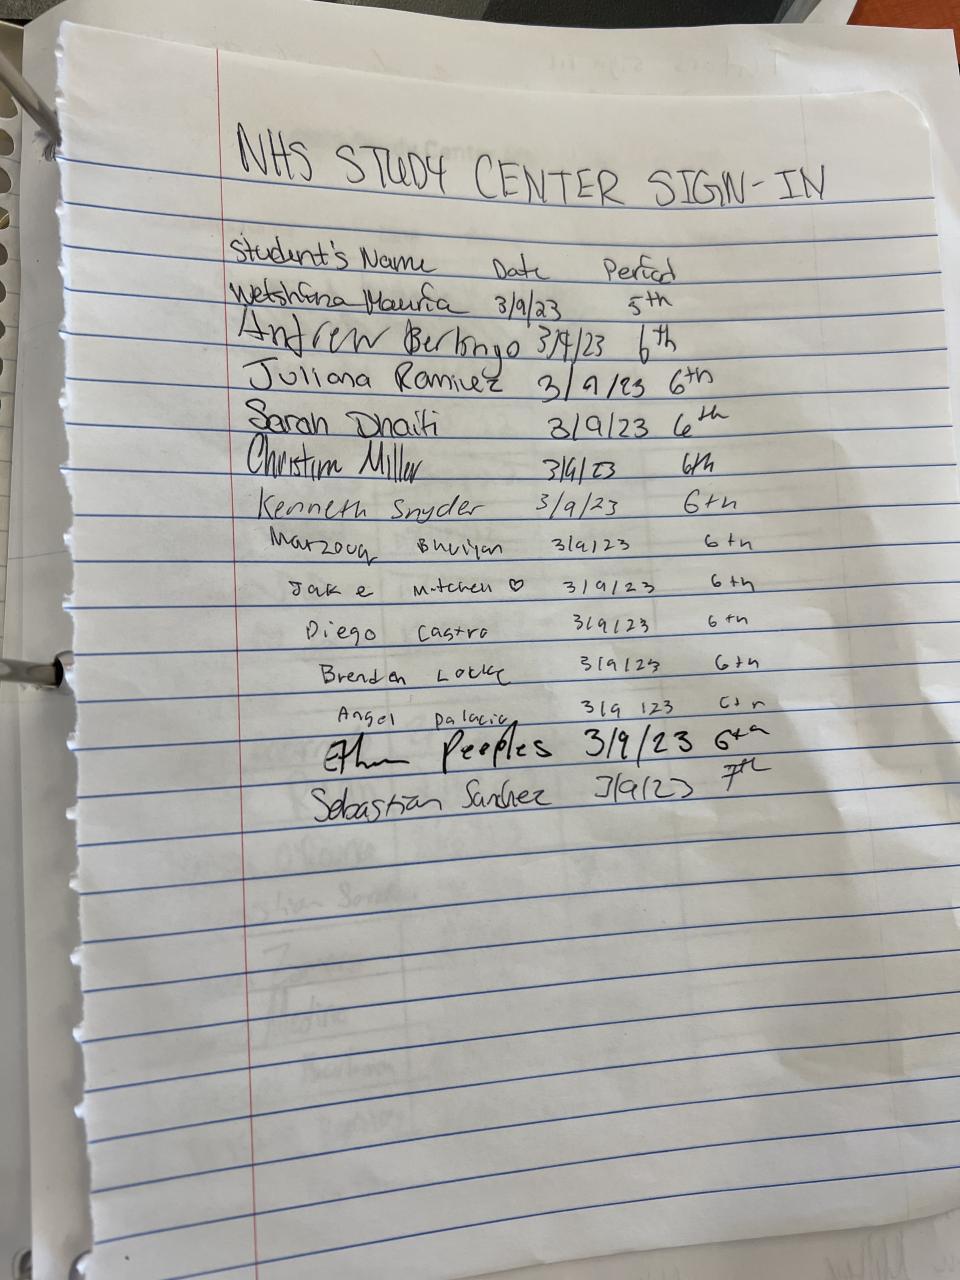 NHS STUDY CENTER SIGN-IN
Student's Name Date Period
3/9/23 5th
Andrew 3/9/23 6th
Juliana Ramirez 3/9/23 6th
Sarah Dhaiti 3/9/23 6th
Miller 3/9/23 6th
Kenneth Snyder 3/9/23 6th
Marzouq Bhuiyan 3/9/23 6th
Jake Mitchell ♡ 3/9/23 6th
Diego Castro 3/9/23 6th
Brenden Locke 3/9/23 6th
Angel Palacio 3/9/23 6th
Ethan Peeples 3/9/23 6th
Sebastian Sanchez 3/9/23 7th